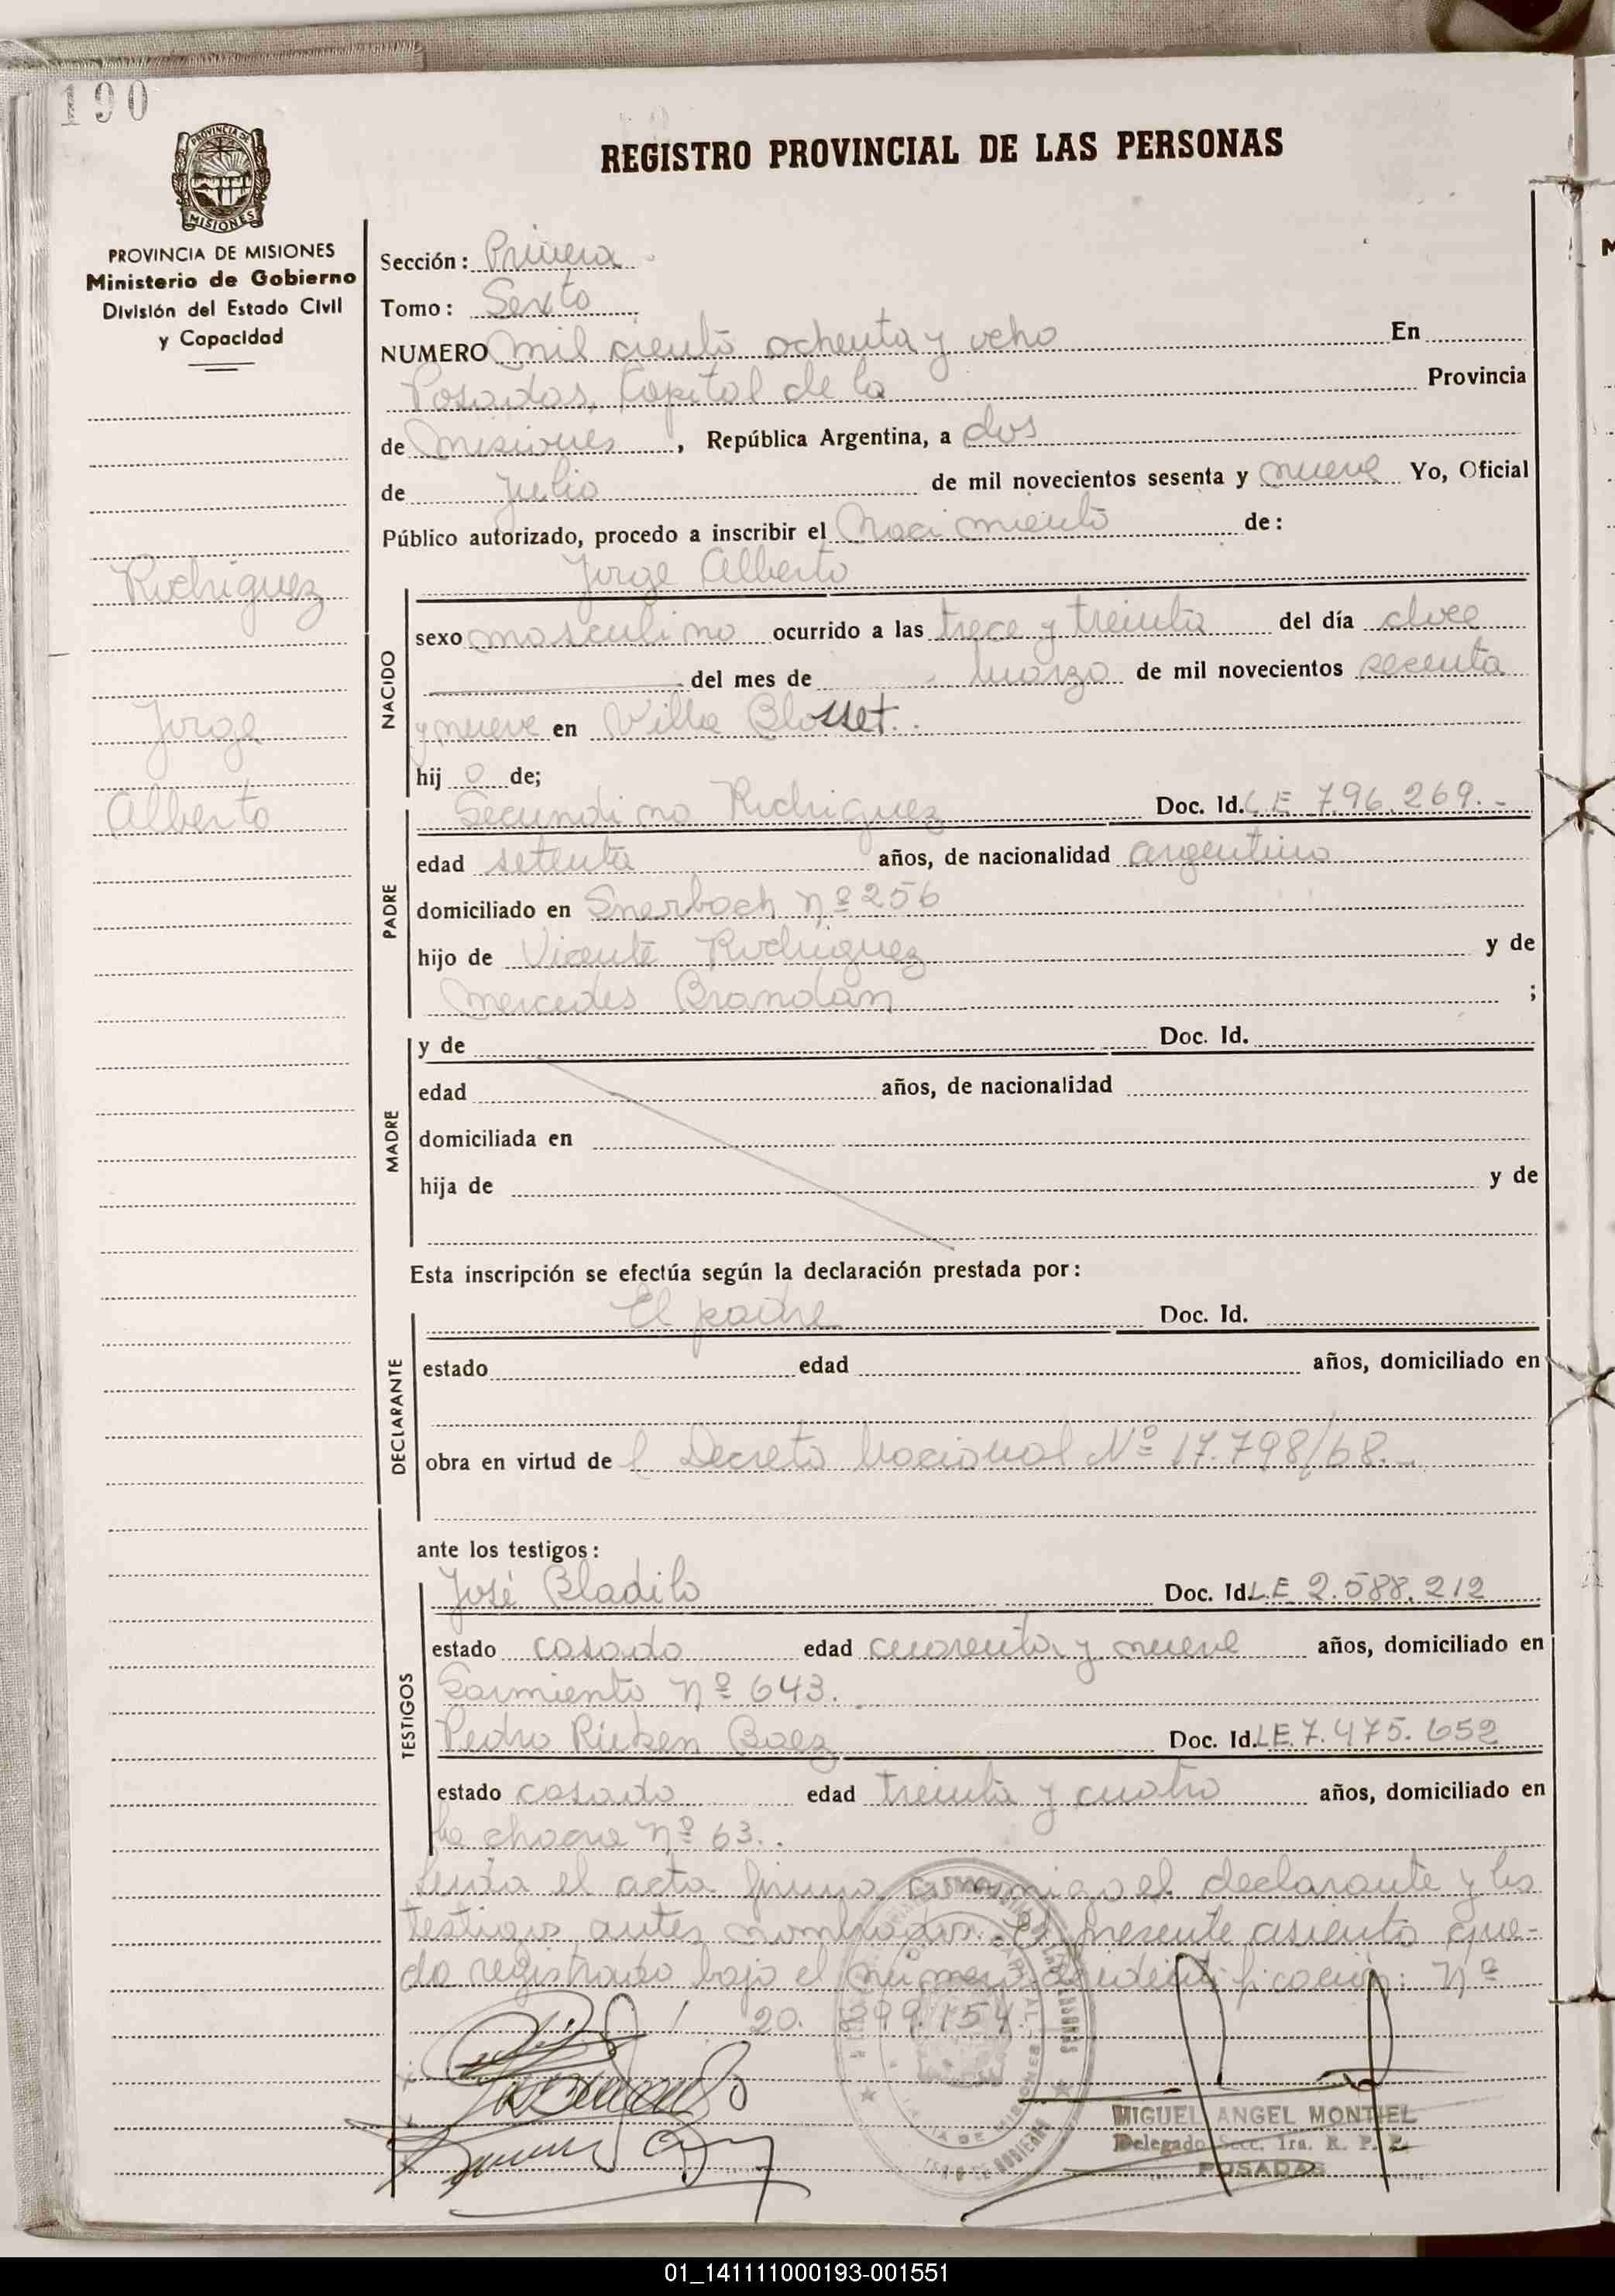 190
REGISTRO PROVINCIAL DE LAS PERSONAS
PROVINCIA DE MISIONES
Ministerio de Gobierno
División del Estado Civil
y Capacidad
Rodriguez
Jorge
Alberto
Sección: Primera
Tomo: Sexto
NUMERO mil ciento ochenta y ocho En
Posadas, Capital de la Provincia
de Misiones, República Argentina, a dos
de Julio de mil novecientos sesenta y nueve Yo, Oficial
Público autorizado, procedo a inscribir el Nacimiento de:
Jorge Alberto
NACIDO
sexo masculino ocurrido a las trece y treinta del día doce
del mes de marzo de mil novecientos secenta
y nueve en Villa Blosset.
hij o de;
PADRE
Secundino Rodriguez Doc. Id. L E 796.269.-
edad setenta años, de nacionalidad argentino
domiciliado en nº 256
hijo de Vicente Rodriguez y de
Mercedes Brandán ;
MADRE
y de Doc. Id.
edad años, de nacionalidad
domiciliada en
hija de y de
Esta inscripción se efectúa según la declaración prestada por:
DECLARANTE
El padre Doc. Id.
estado edad años, domiciliado en
obra en virtud de l Decreto Nacional Nº 17.798/68.-
ante los testigos:
TESTIGOS
José Bladilo Doc. Id. L.E 2.588.212
estado casado edad cuarenta y nueve años, domiciliado en
Sarmiento nº 643.
Pedro Baez Doc. Id. LE.7.475.652
estado casado edad treinta y cuatro años, domiciliado en
nº 63.
Leida el acta firma conmigo el declarante y los
testigos antes nombrados. El presente asiento que-
da registrado bajo el numero de identificación: Nº
20. 899.154.
MIGUEL ANGEL MONTIEL
Delegado Secc. 1ra. R. P. P.
POSADAS
01_141111000193-001551